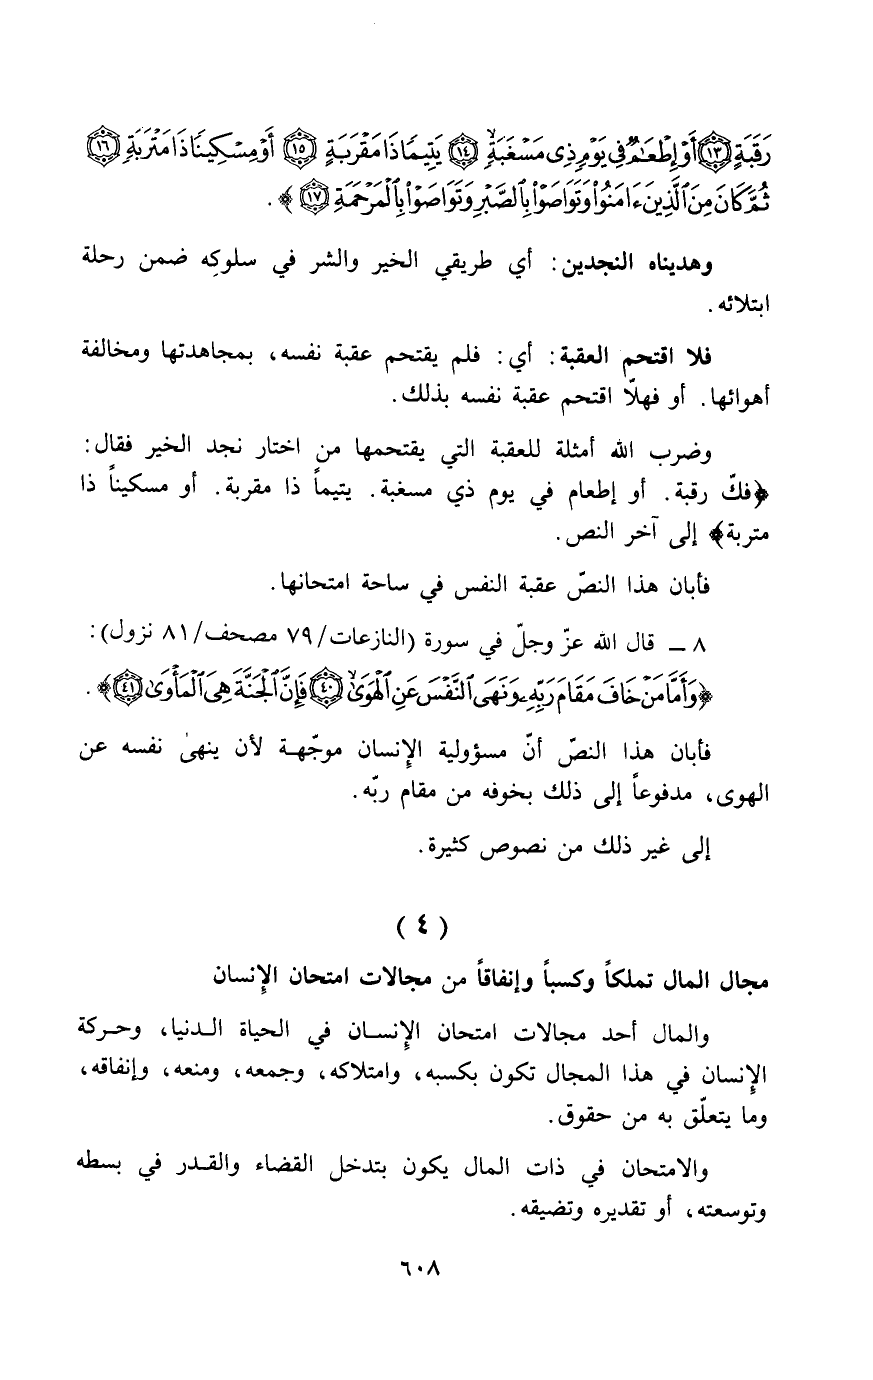 رَقَبَةٍ ﴿١٣﴾ أَوْ إِطْعَٰمٌ فِى يَوْمٍ ذِى مَسْغَبَةٍ ﴿١٤﴾ يَتِيمًا ذَا مَقْرَبَةٍ ﴿١٥﴾ أَوْ مِسْكِينًا ذَا مَتْرَبَةٍ ﴿١٦﴾
ثُمَّ كَانَ مِنَ ٱلَّذِينَ ءَامَنُوا۟ وَتَوَاصَوْا۟ بِٱلصَّبْرِ وَتَوَاصَوْا۟ بِٱلْمَرْحَمَةِ ﴿١٧﴾ ﴾ .
وهديناه النجدين: أي طريقي الخير والشر في سلوكِه ضمن رحلة
ابتلائه.
فلا اقتحم العقبة: أي: فلم يقتحم عقبة نفسه، بمجاهدتها ومخالفة
أهوائها. أو فهلّا اقتحم عقبة نفسه بذلك.
وضرب الله أمثلة للعقبة التي يقتحمها من اختار نجد الخير فقال:
﴿فكّ رقبة. أو إطعام في يوم ذي مسغبة. يتيماً ذا مقربة. أو مسكيناً ذا
متربة﴾ إلى آخر النص.
فأبان هذا النصّ عقبة النفس في ساحة امتحانها.
٨ ـ قال الله عزّ وجلّ في سورة (النازعات/ ٧٩ مصحف/ ٨١ نزول):
﴿وَأَمَّا مَنْ خَافَ مَقَامَ رَبِّهِۦ وَنَهَى ٱلنَّفْسَ عَنِ ٱلْهَوَىٰ ﴿٤٠﴾ فَإِنَّ ٱلْجَنَّةَ هِىَ ٱلْمَأْوَىٰ ﴿٤١﴾﴾ .
فأبان هذا النصّ أنّ مسؤولية الإنسان موجّهة لأن ينهىٰ نفسه عن
الهوى، مدفوعاً إلى ذلك بخوفه من مقام ربّه.
إلى غير ذلك من نصوص كثيرة.
( ٤ )
مجال المال تملكاً وكسباً وإنفاقاً من مجالات امتحان الإنسان
والمال أحد مجالات امتحان الإنسان في الحياة الدنيا، وحركة
الإنسان في هذا المجال تكون بكسبه، وامتلاكه، وجمعه، ومنعه، وإنفاقه،
وما يتعلّق به من حقوق.
والامتحان في ذات المال يكون بتدخل القضاء والقدر في بسطه
وتوسعته، أو تقديره وتضيقه.
٦٠٨